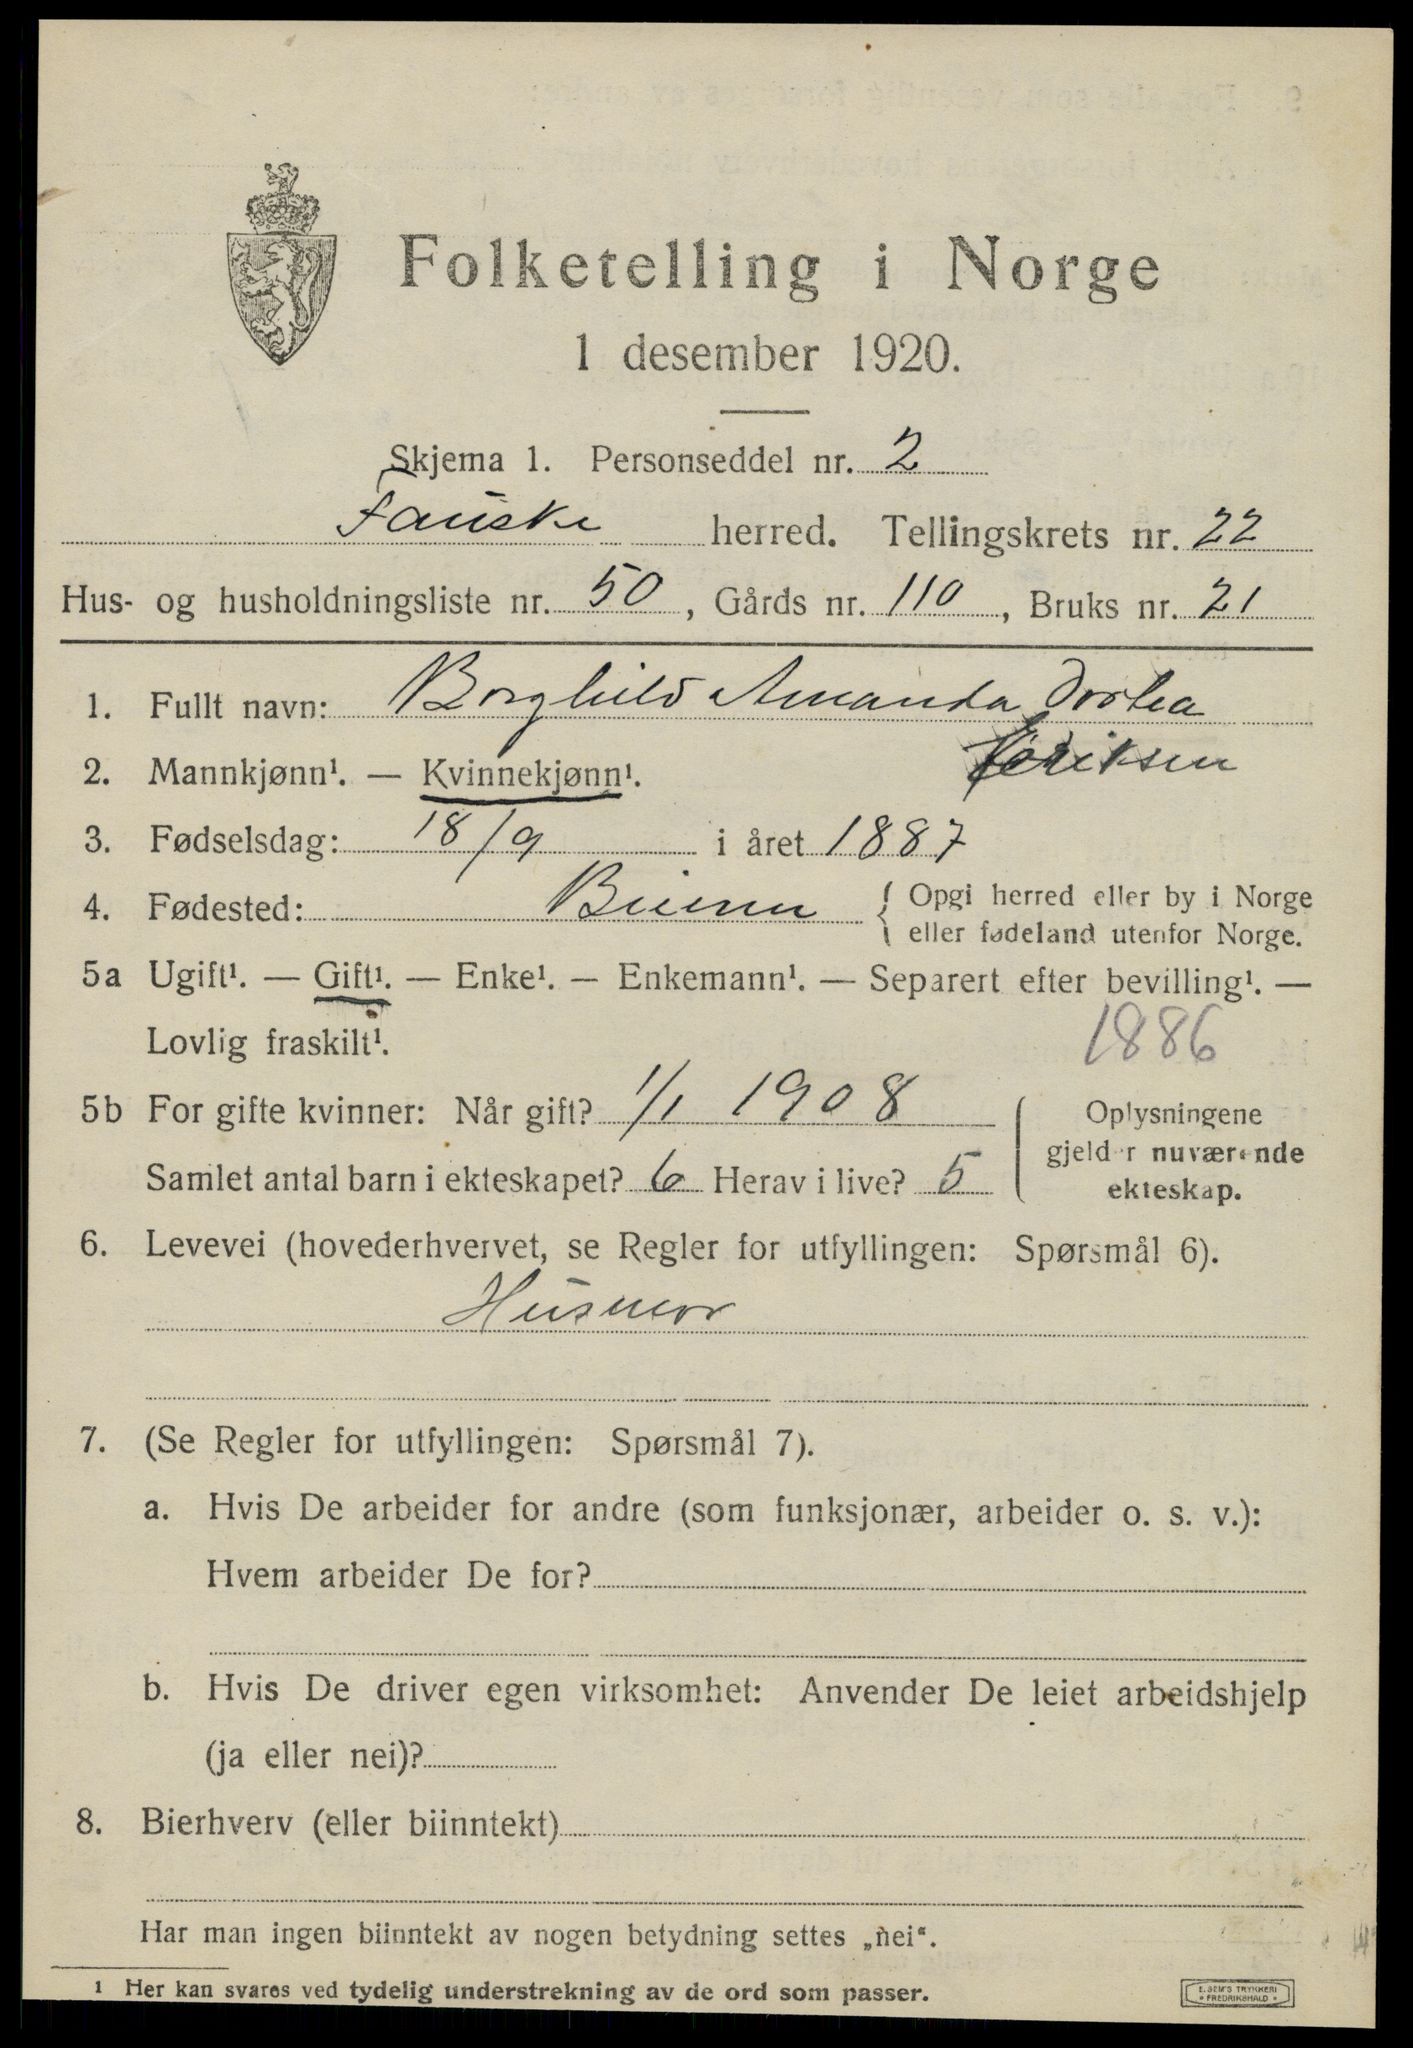 Folketelling i Norge
1 desember 1920.
Skjema 1. Personseddel nr. 2
Fauske herred. Tellingskrets nr. 22
Hus- og husholdningsliste nr. 50, Gårds nr. 110, Bruks nr. 21
1. Fullt navn: Borghild Amanda Dortea
Eriksen
2. Mannkjønn¹. — Kvinnekjønn¹.
3. Fødselsdag: 18/9 i året 1887
4. Fødested: { Opgi herred eller by i Norge
eller fødeland utenfor Norge.
5a Ugift¹. — Gift¹. — Enke¹. — Enkemann¹. — Separert efter bevilling¹. —
Lovlig fraskilt¹.
1886
5b For gifte kvinner: Når gift? 1/1 1908
Samlet antal barn i ekteskapet? 6 Herav i live? 5
Oplysningene
gjelder nuværende
ekteskap.
6. Levevei (hovederhvervet, se Regler for utfyllingen: Spørsmål 6).
Husmor
7. (Se Regler for utfyllingen: Spørsmål 7).
a. Hvis De arbeider for andre (som funksjonær, arbeider o. s. v.):
Hvem arbeider De for?
b. Hvis De driver egen virksomhet: Anvender De leiet arbeidshjelp
(ja eller nei)?
8. Bierhverv (eller biinntekt)
Har man ingen biinntekt av nogen betydning settes „nei“.
1 Her kan svares ved tydelig understrekning av de ord som passer.
E. SEM'S TRYKKERI
* FREDRIKSHALD *